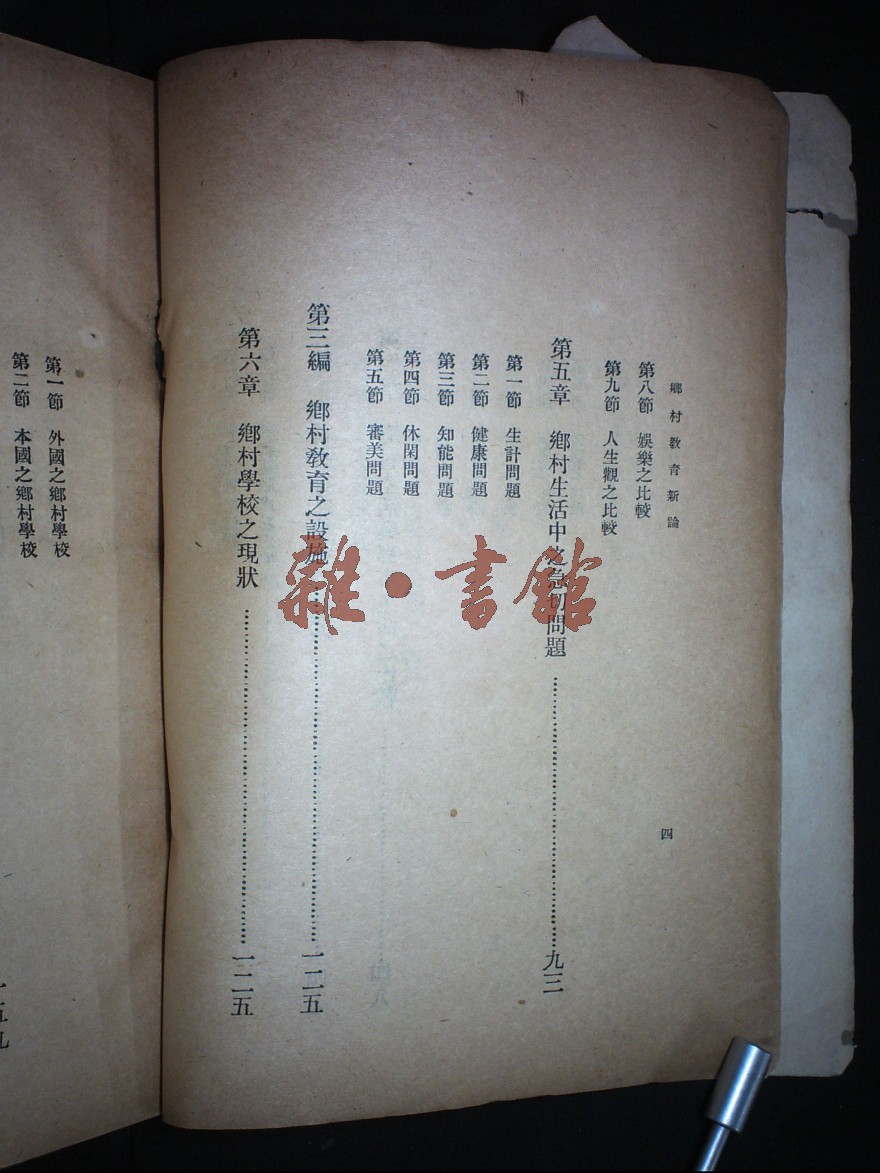 鄉村敎育新論
四
第八節　娛樂之比較
第九節　人生觀之比較
第五章　鄉村生活中之急切問題……九三
第一節　生計問題
第二節　健康問題
第三節　知能問題
第四節　休閑問題
第五節　審美問題
第三編　鄉村敎育之設施……一二五
第六章　鄉村學校之現狀……一二五
第一節　外國之鄉村學校
第二節　本國之鄉村學校
雜·書館